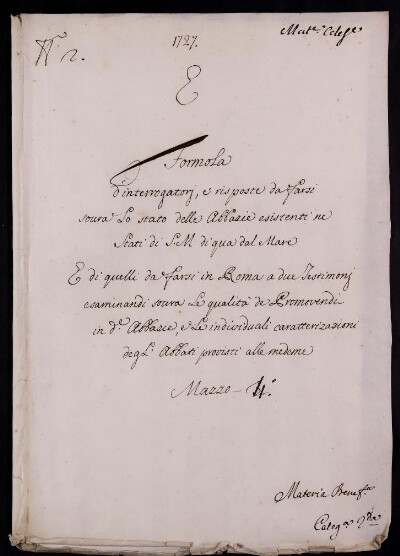 Mat.e Eccles.e
N.° 2.
1727.
E
Formola
d'interrogatorj, e risposte da farsi
soura Lo stato delle Abbazie esistenti ne
Stati di S. M. di qua dal Mare
E di quelli da farsi in Roma a due Testimonj
esaminandi soura Le qualità de Promovendi
in d.e Abbazie, e Le individuali caratterizazioni
degL'Abbati provisti alle medeme
Mazzo 4.°
Materia Benef.a
Categ.a